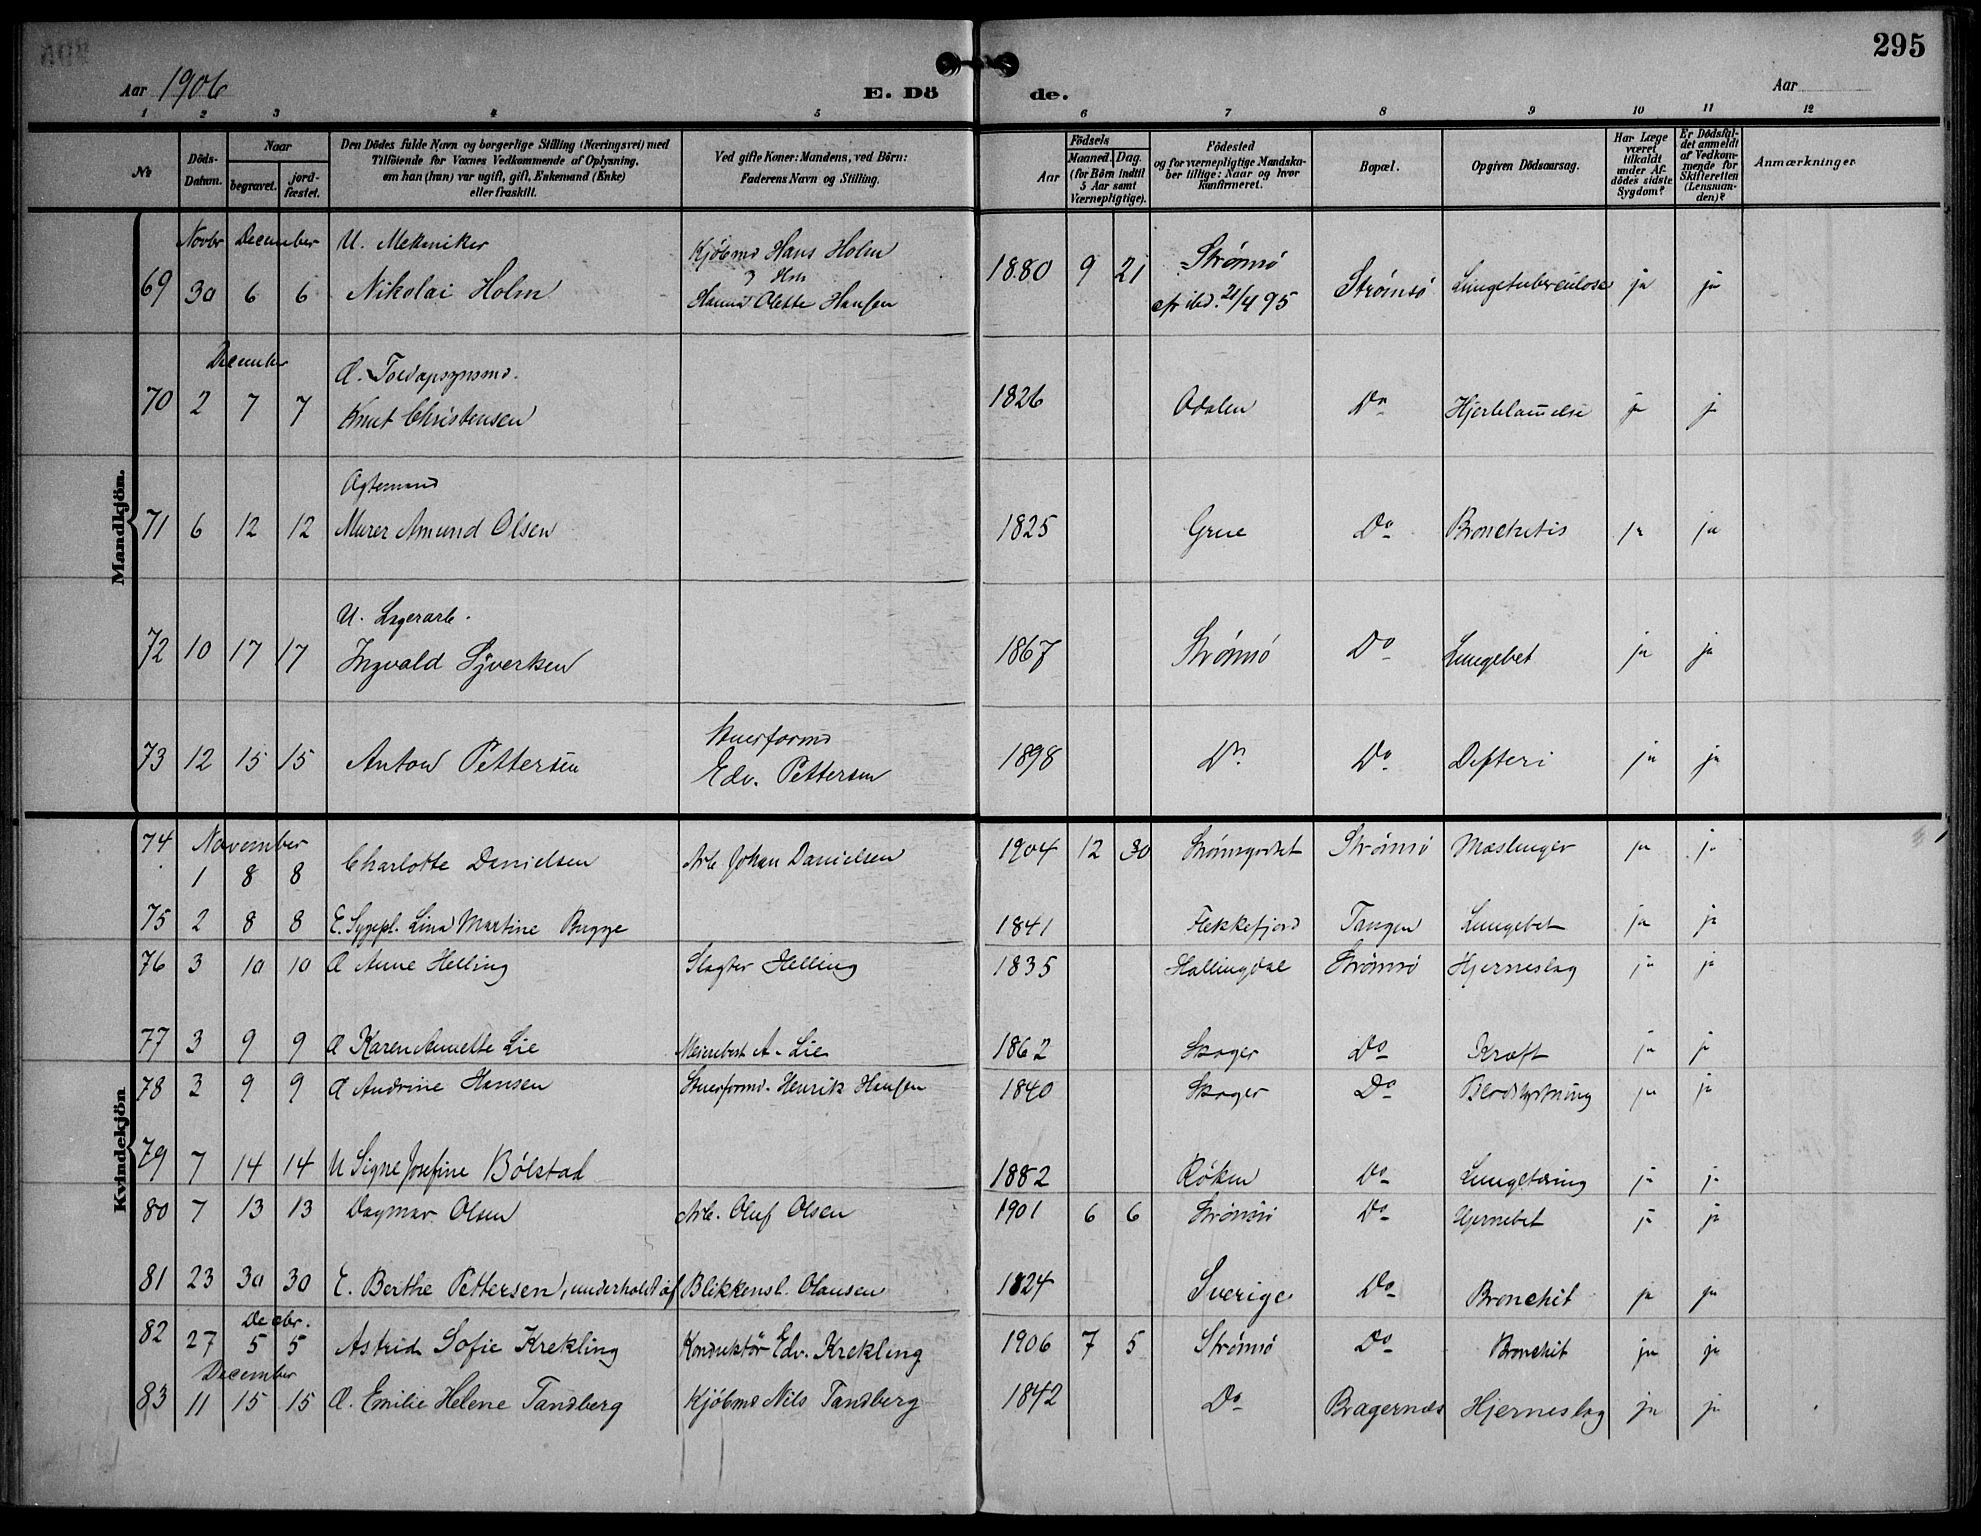 295
Aar 1906 E. Dö de. Aar
1 2 3 4 5 6 7 8 9 10 11 12
No Döds-Datum. Naar begravet. jordfæstet. Den Dödes fulde Navn og borgerlige Stilling (Næringsvei) med Tilföiende for Voxnes Vedkommende af Oplysning, om han (hun) var ugift, gift, Enkemand (Enke) eller fraskilt. Ved gifte Koner: Mandens, ved Börn: Faderens Navn og Stilling. Aar Födsels Maaned. Dag. (for Börn indtil 5 Aar samt Værnepligtige). Födested og for værnepligtige Mandskaber tillige: Naar og hvor Konfirmeret. Bopæl. Opgiven Dödsaarsag. Har Læge været tilkaldt under Afdödes sidste Sygdom? Er Dödsfaldet anmeldt af Vedkommende for Skifteretten (Lensmanden)? Anmærkninger
Mandkjön.
Novbr December U. Mekaniker Kjöbmd Hans Holm
69 30 6 6 Nikolai Holm Olette Hansen 1880 9 21 Strömsö 21/4 95 Strömsö Lungetuberculose ja ja
December
70 2 7 7 Knut Christensen 1826 Odalen Do Hjertelammelse ja ja
Agtemand
71 6 12 12 Murer Amund Olsen 1825 Grue Do Bronchitis ja ja
U. Lagerarb.
72 10 17 17 Ingvald Syversen 1867 Strömsö Do Lungebet ja ja
Stuerformd
73 12 15 15 Anton Pettersen Edv. Pettersen 1898 Do Do Difteri ja ja
Kvindekjön
November
74 1 8 8 Charlotte Danielsen Arb. Johan Danielsen 1904 12 30 Strömsgodset Strömsö Mæslinger ja ja
75 2 8 8 E. Sygepl. Lina Martine Bugge 1841 Flekkefjord Tangen Lungebet ja ja
76 3 10 10 Æ Anne Helling Slagter Helling 1835 Hallingdal Strömsö Hjerneslag ja ja
77 3 9 9 Æ Karen Annette Lie Meieribest A. Lie 1862 Skoger Do Kræft ja ja
78 3 9 9 Æ Andrine Hansen Stuerformd. Henrik Hansen 1840 Skoger Do Blodstyrtning ja ja
79 7 14 14 U Signe Josefine Bölstad 1882 Röken Do Lungetæring ja ja
80 7 13 13 Dagmar Olsen Arb. Oluf Olsen 1901 6 6 Strömsö Do Hjernebet ja ja
81 23 30 30 E. Berthe Pettersen, underholdt af Blikkensl. Olausen 1824 Sverige Do Bronchit ja ja
Decbr.
82 27 5 5 Astrid Sofie Krekling Konduktör Edv. Krekling 1906 7 5 Strömsö Do Bronchit ja ja
December
83 11 15 15 Æ. Emilie Helene Tandberg Kjöbmd Nils Tandberg 1842 Do Bragernæs Hjerneslag ja ja